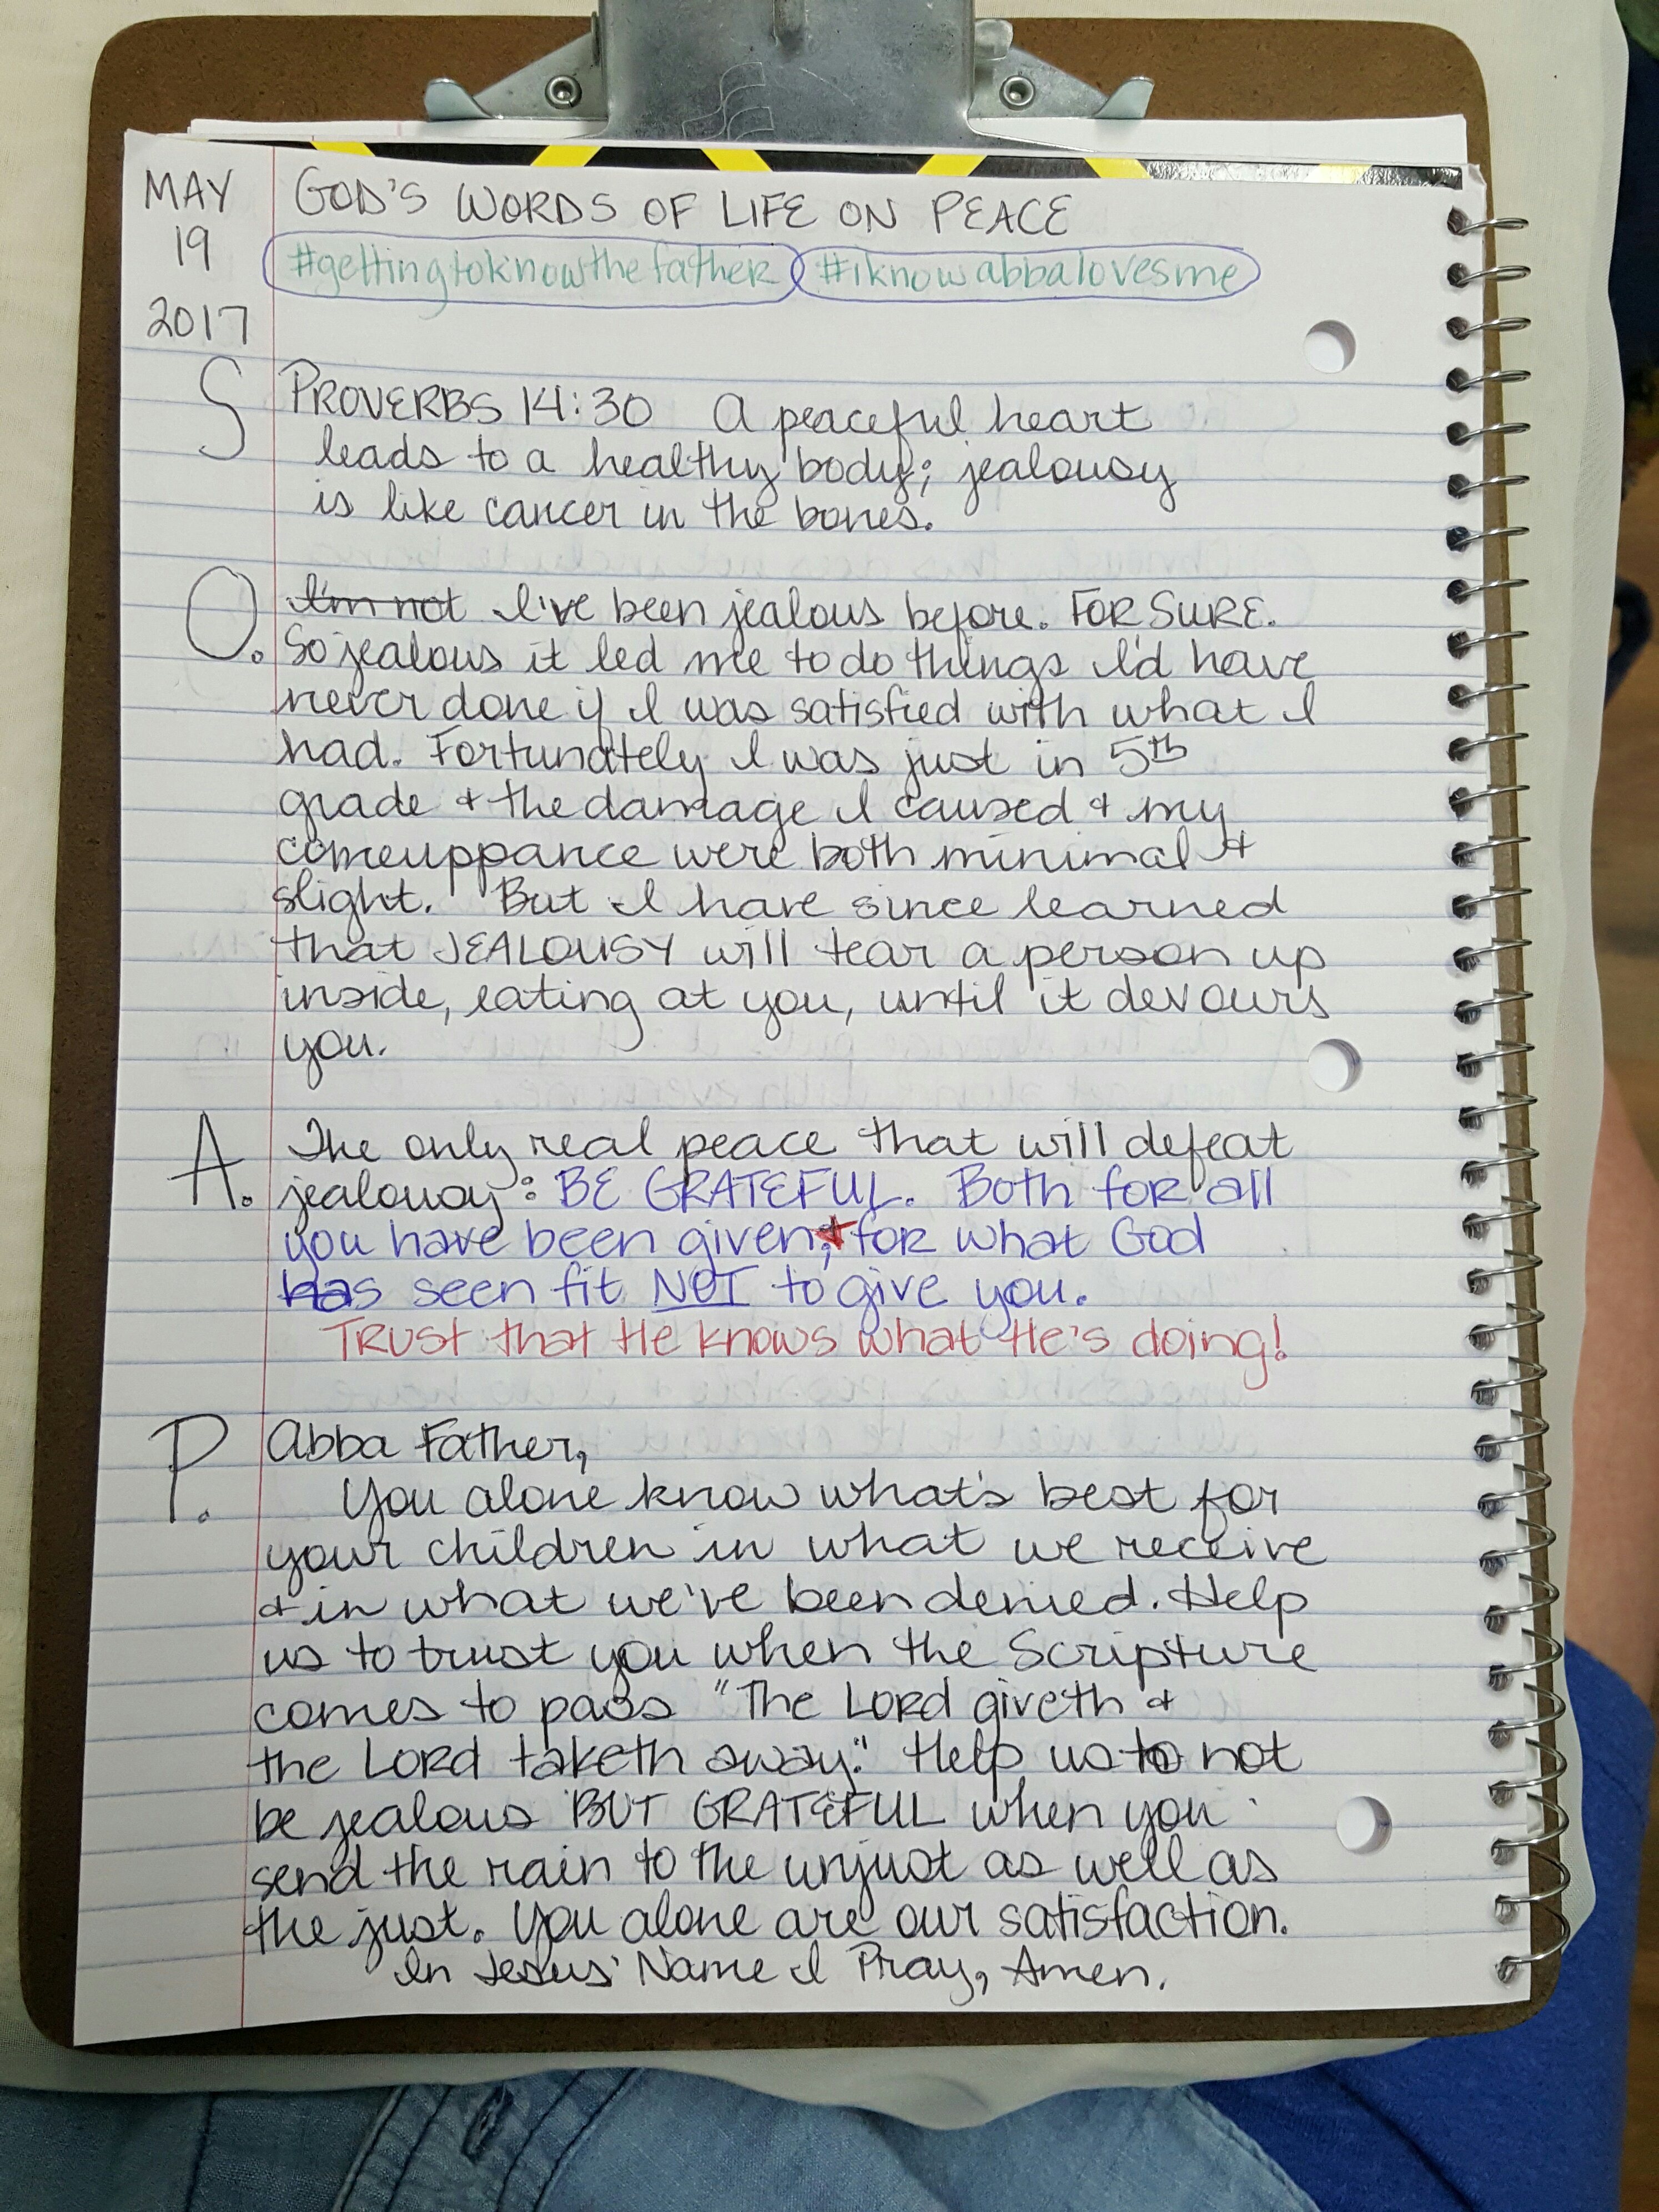 MAY
19
2017
GOD'S WORDS OF LIFE ON PEACE
#gettingtoknowthefather #iknowabbalovesme
S PROVERBS 14:30 A peaceful heart
leads to a healthy body; jealousy
is like cancer in the bones.
O. I'm not I've been jealous before. FOR SURE.
So jealous it led me to do things I'd have
never done if I was satisfied with what I
had. Fortunately I was just in 5th
grade & the damage I caused & my
comeuppance were both minimal &
slight. But I have since learned
that JEALOUSY will tear a person up
inside, eating at you, until it devours
you.
A. The only real peace that will defeat
jealousy: BE GRATEFUL. Both for all
you have been given, & for what God
has seen fit NOT to give you.
TRUST that He knows what He's doing!
P. Abba Father,
You alone know what's best for
your children in what we receive
& in what we've been denied. Help
us to trust you when the Scripture
comes to pass "The Lord giveth &
the Lord taketh away." Help us to not
be jealous BUT GRATEFUL when you
send the rain to the unjust as well as
the just. You alone are our satisfaction.
In Jesus' Name I Pray, Amen.